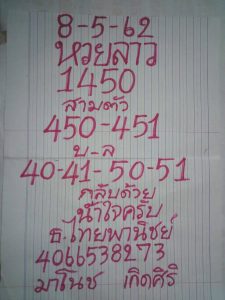 8-5-62
หวยลาว
1450
สามตัว
450-451
บ-ล
40-41-50-51
กลับด้วย
น้ำใจครับ
ธ.ไทยพานิชย์
4066538273
มาโนช เกิดศิริ